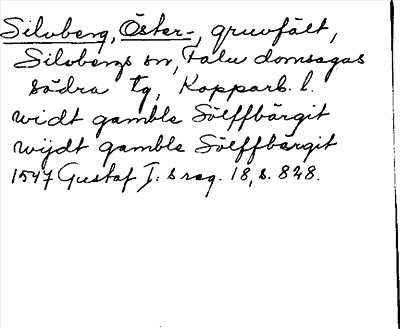 Silvberg, Öster-, gruvfält,
Silvbergs sn, Falu domsagas
södra tg, Kopparb. l.
widt gamble Sölffbärgit
wijdt gamble Sölffbärgit
1547 Gustaf I:s reg. 18, s. 828.